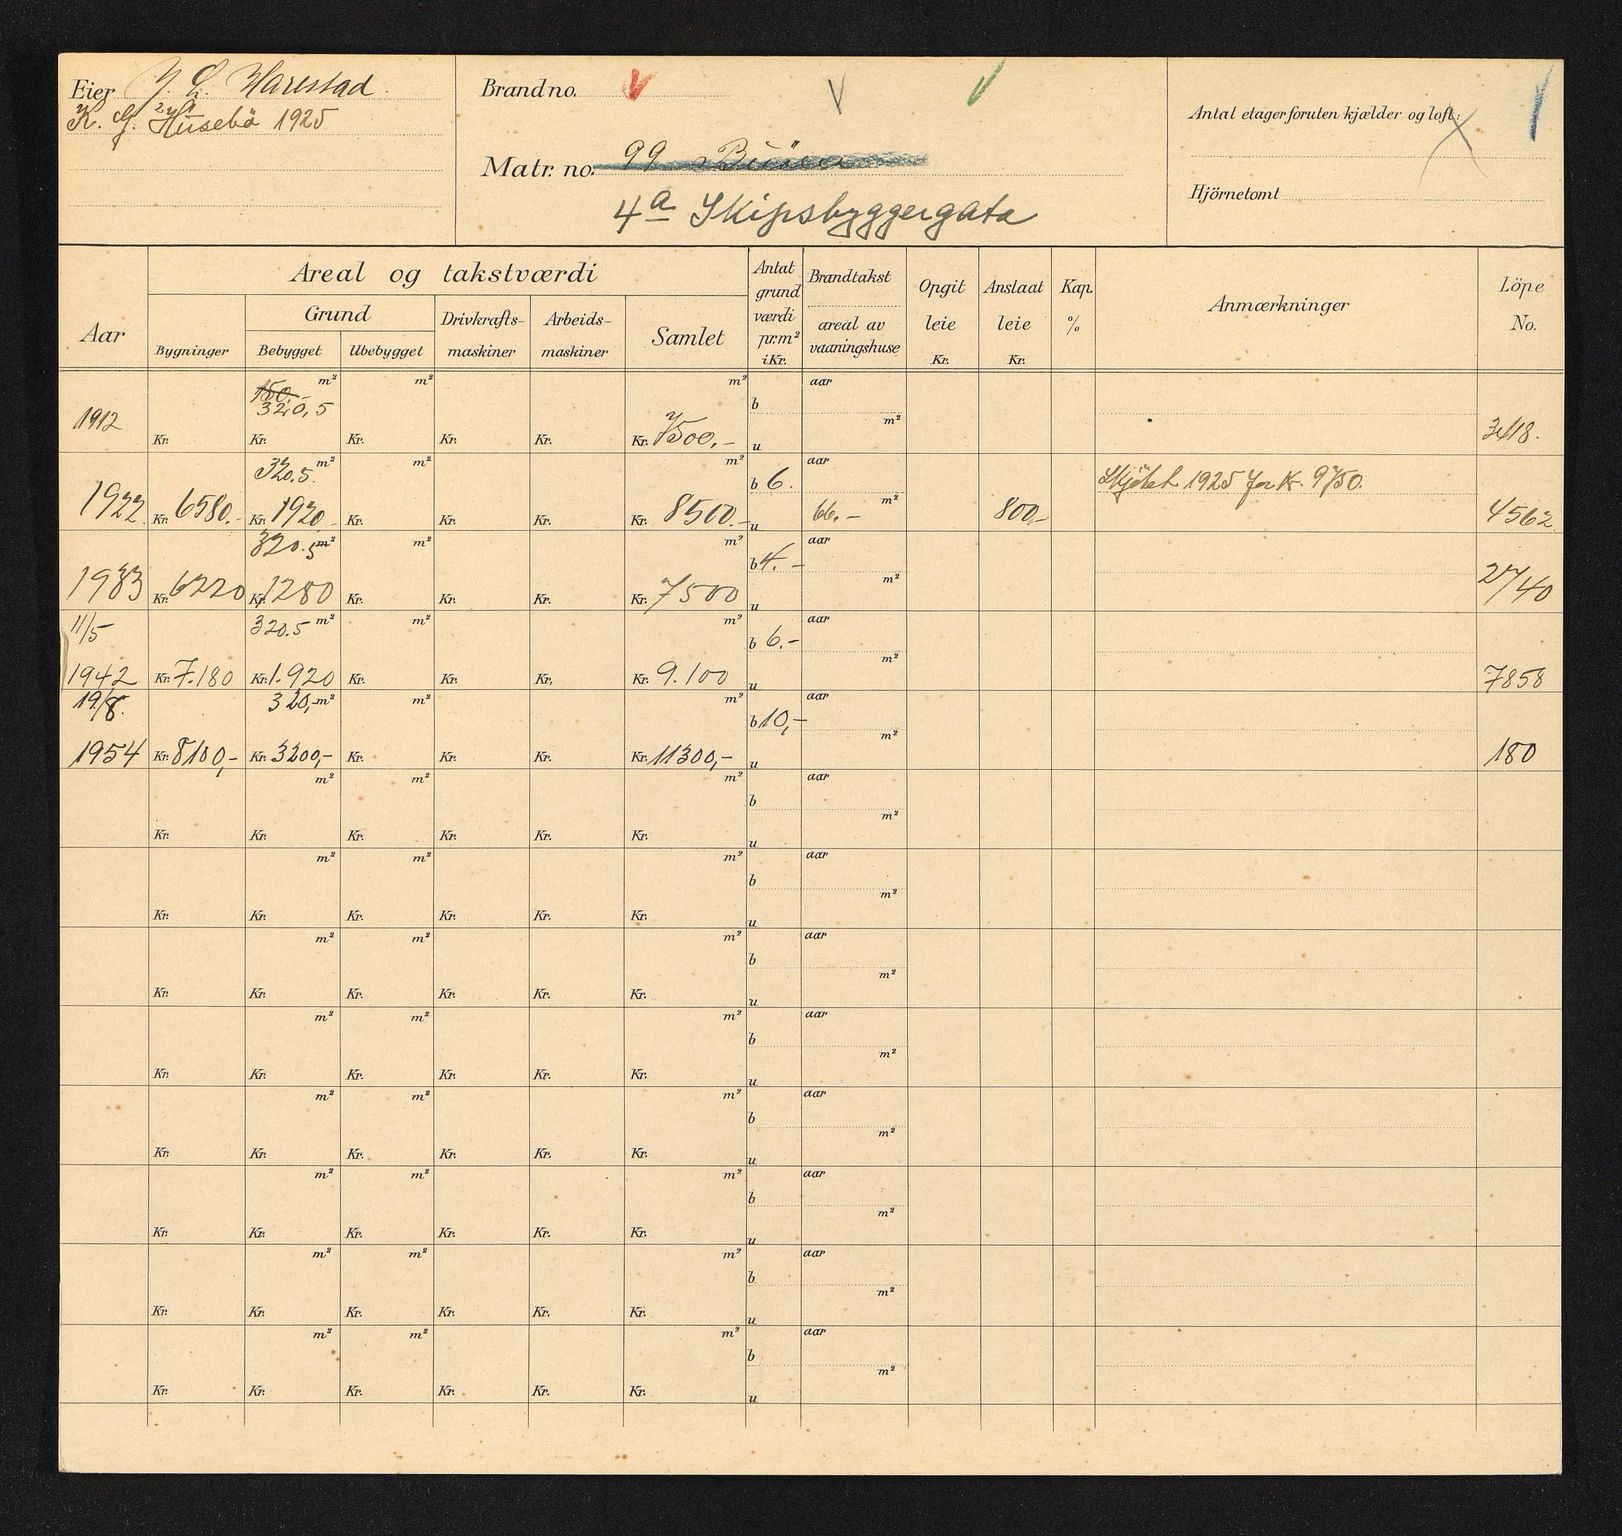 Eier Y. L. Harestad.
K. G. Husebö 1925
Brandno.
Matr. no. 99 Buöen
4a Skipsbyggergata
Antal etager foruten kjælder og loft:
Hjörnetomt
Areal og takstværdi
Aar
Bygninger
Grund
Bebygget
Ubebygget
Drivkrafts-
maskiner
Arbeids-
maskiner
Samlet
Antat
grund
værdi
pr.m²
i Kr.
Brandtakst
areal av
vaaningshuse
Opgit
leie
Kr.
Anslaat
leie
Kr.
Kap.
%
Anmærkninger
Löpe
No.
150.- m² m² m² aar
320,5 b
1912 m² 3418.
Kr. Kr. Kr. Kr. Kr. Kr. 7500,- u
320.5. m² m² m² aar
b 6. Skjötet 1925 for K. 9750.
1922. Kr. 6580.- Kr. 1920 Kr. Kr. Kr. Kr. 8500.- u 66.- m² 800,- 4562
320.5 m² m² m² aar
b 4.- m²
1933 Kr. 6220 Kr. 1280 Kr. Kr. Kr. Kr. 7500 u 27/40
11/5 320.5 m² m² m² aar
b 6.- m²
1942 Kr. 7.180 Kr. 1.920 Kr. Kr. Kr. Kr. 9.100 u 7858
19/8. 320,- m² m² m² aar
b 10,- m²
1954 Kr. 8100,- Kr. 3200,- Kr. Kr. Kr. Kr. 11300,- u 180
m² m² m² aar
b m²
Kr. Kr. Kr. Kr. Kr. Kr. u
m² m² m² aar
b m²
Kr. Kr. Kr. Kr. Kr. Kr. u
m² m² m² aar
b m²
Kr. Kr. Kr. Kr. Kr. Kr. u
m² m² m² aar
b m²
Kr. Kr. Kr. Kr. Kr. Kr. u
m² m² m² aar
b m²
Kr. Kr. Kr. Kr. Kr. Kr. u
m² m² m² aar
b m²
Kr. Kr. Kr. Kr. Kr. Kr. u
m² m² m² aar
b m²
Kr. Kr. Kr. Kr. Kr. Kr. u
m² m² m² aar
b m²
Kr. Kr. Kr. Kr. Kr. Kr. u